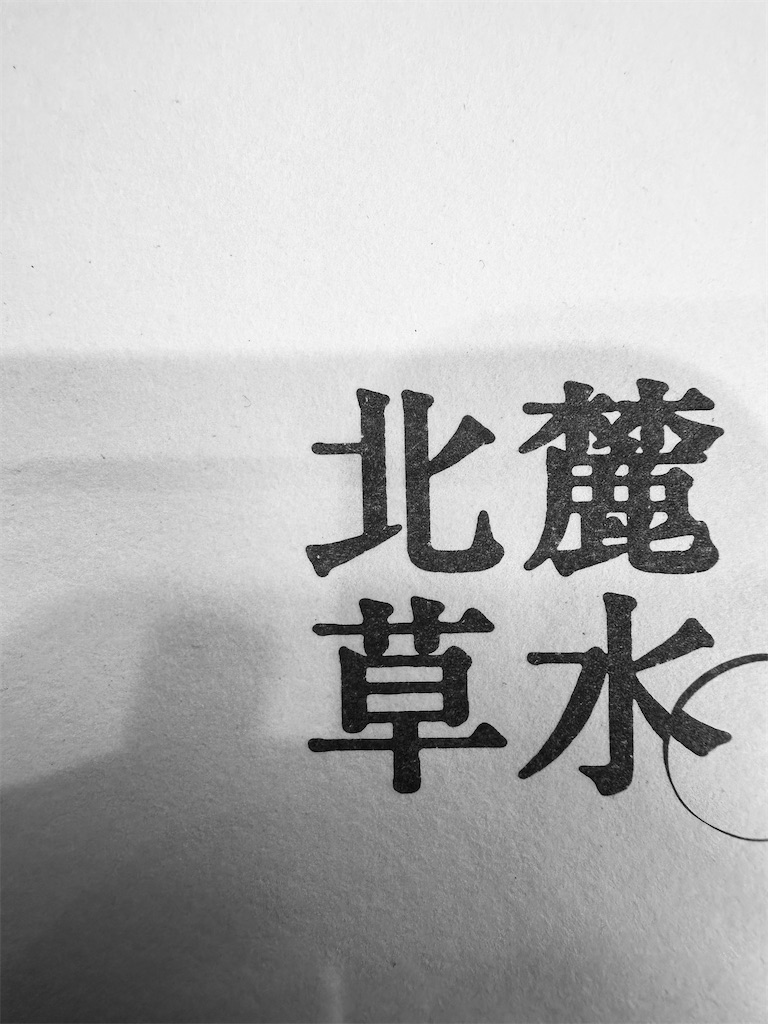 北麓
草水